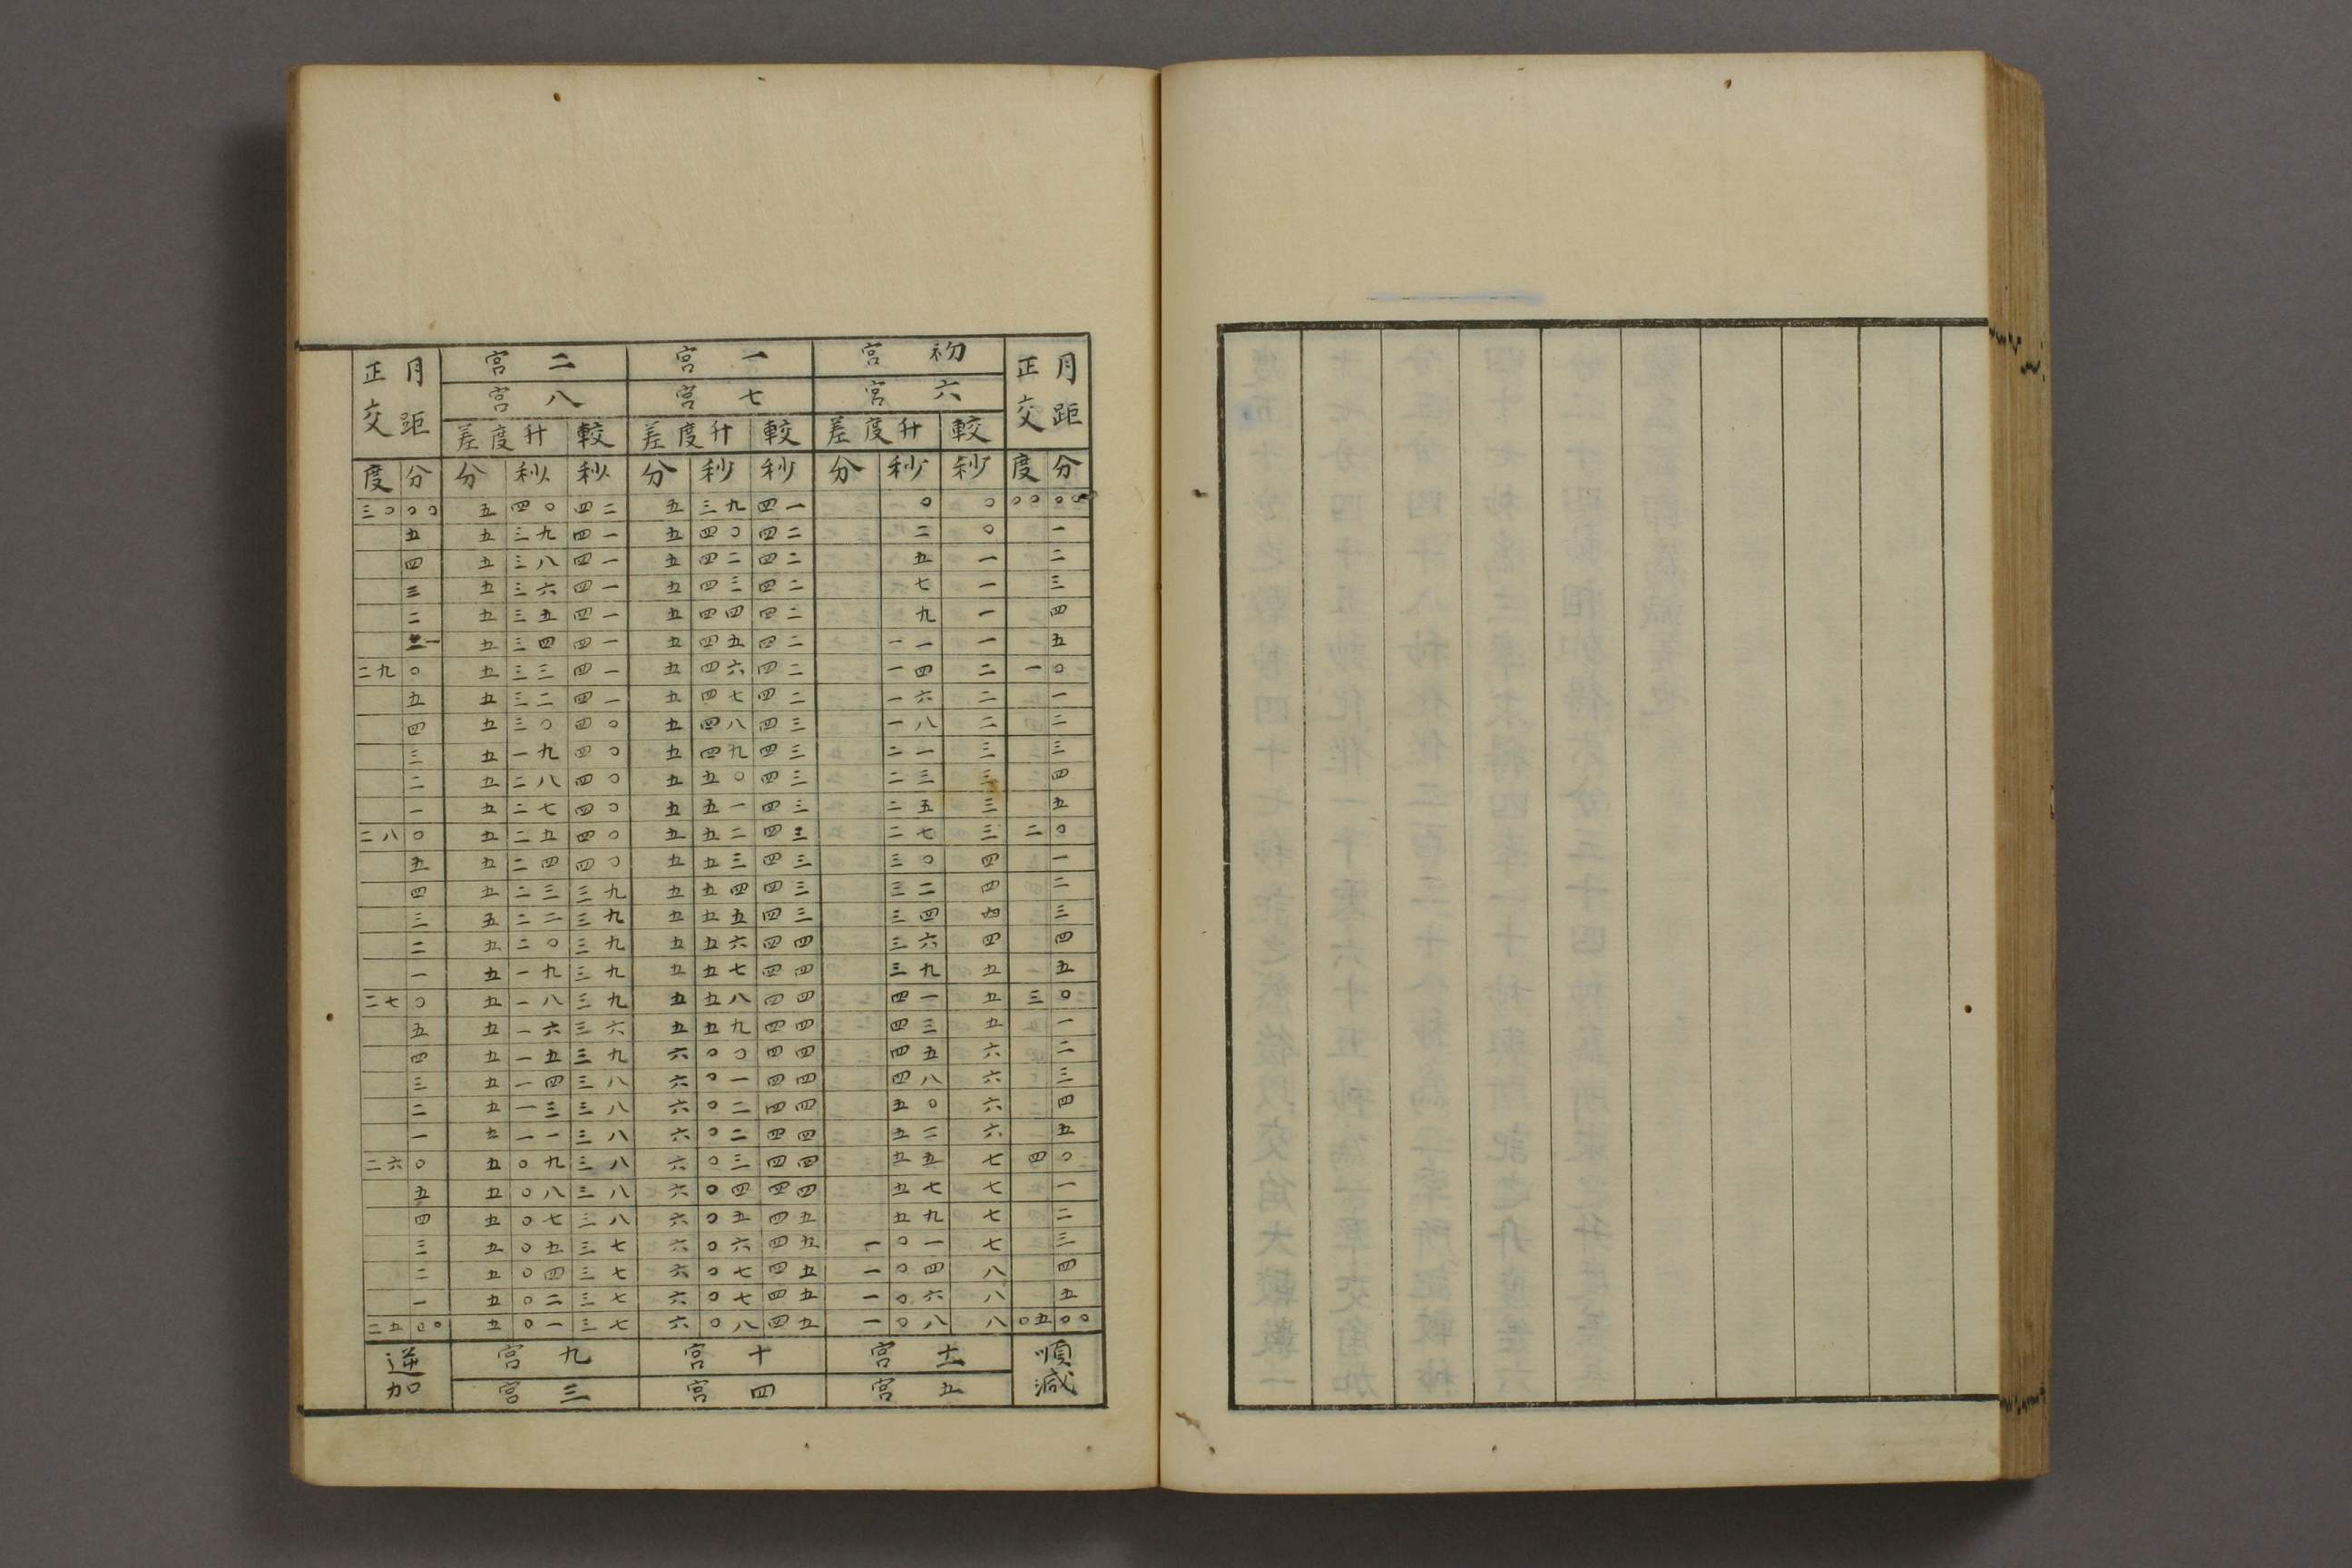 月距正交 初宮 一宮 二宮 月距正交
六宮 七宮 八宮
較 升度差 較 升度差 較 升度差
度 分 分 秒 秒 分 秒 秒 分 秒 秒 度 分
三〇 〇〇 五 四〇 四二 五 三九 四一 〇 〇 〇〇 〇〇
五 五 三九 四一 五 四〇 四二 二 〇 一
四 五 三八 四一 五 四二 四二 五 一 二
三 五 三六 四一 五 四三 四二 七 一 三
二 五 三五 四一 五 四四 四二 九 一 四
一 五 三四 四一 五 四五 四二 一一 一 五
二九 〇 五 三三 四一 五 四六 四二 一四 二 一 〇
五 五 三二 四一 五 四七 四二 一六 二 一
四 五 三〇 四〇 五 四八 四三 一八 二 二
三 五 一九 四〇 五 四九 四三 二一 三 三
二 五 二八 四〇 五 五〇 四三 二三 三 四
一 五 二七 四〇 五 五一 四三 二五 三 五
二八 〇 五 二五 四〇 五 五二 四三 二七 三 二 〇
五 五 二四 四〇 五 五三 四三 三〇 四 一
四 五 二三 三九 五 五四 四三 三二 四 二
三 五 二二 三九 五 五五 四三 三四 四 三
二 五 二〇 三九 五 五六 四四 三六 四 四
一 五 一九 三九 五 五七 四四 三九 五 五
二七 〇 五 一八 三九 五 五八 四四 四一 五 三 〇
五 五 一六 三六 五 五九 四四 四三 五 一
四 五 一五 三九 六 〇〇 四四 四五 六 二
三 五 一四 三八 六 〇一 四四 四八 六 三
二 五 一三 三八 六 〇二 四四 五〇 六 四
一 五 一一 三八 六 〇二 四四 五二 六 五
二六 〇 五 〇九 三八 六 〇三 四四 五五 七 四 〇
五 五 〇八 三八 六 〇四 四四 五七 七 一
四 五 〇七 三八 六 〇五 四五 五九 七 二
三 五 〇五 三七 六 〇六 四五 一 〇一 七 三
二 五 〇四 三七 六 〇七 四五 一 〇四 八 四
一 五 〇二 三七 六 〇七 四五 一 〇六 八 五
二五 〇〇 五 〇一 三七 六 〇八 四五 一 〇八 八 〇五 〇〇
順減 十一宮 十宮 九宮 逆加
五宮 四宮 三宮